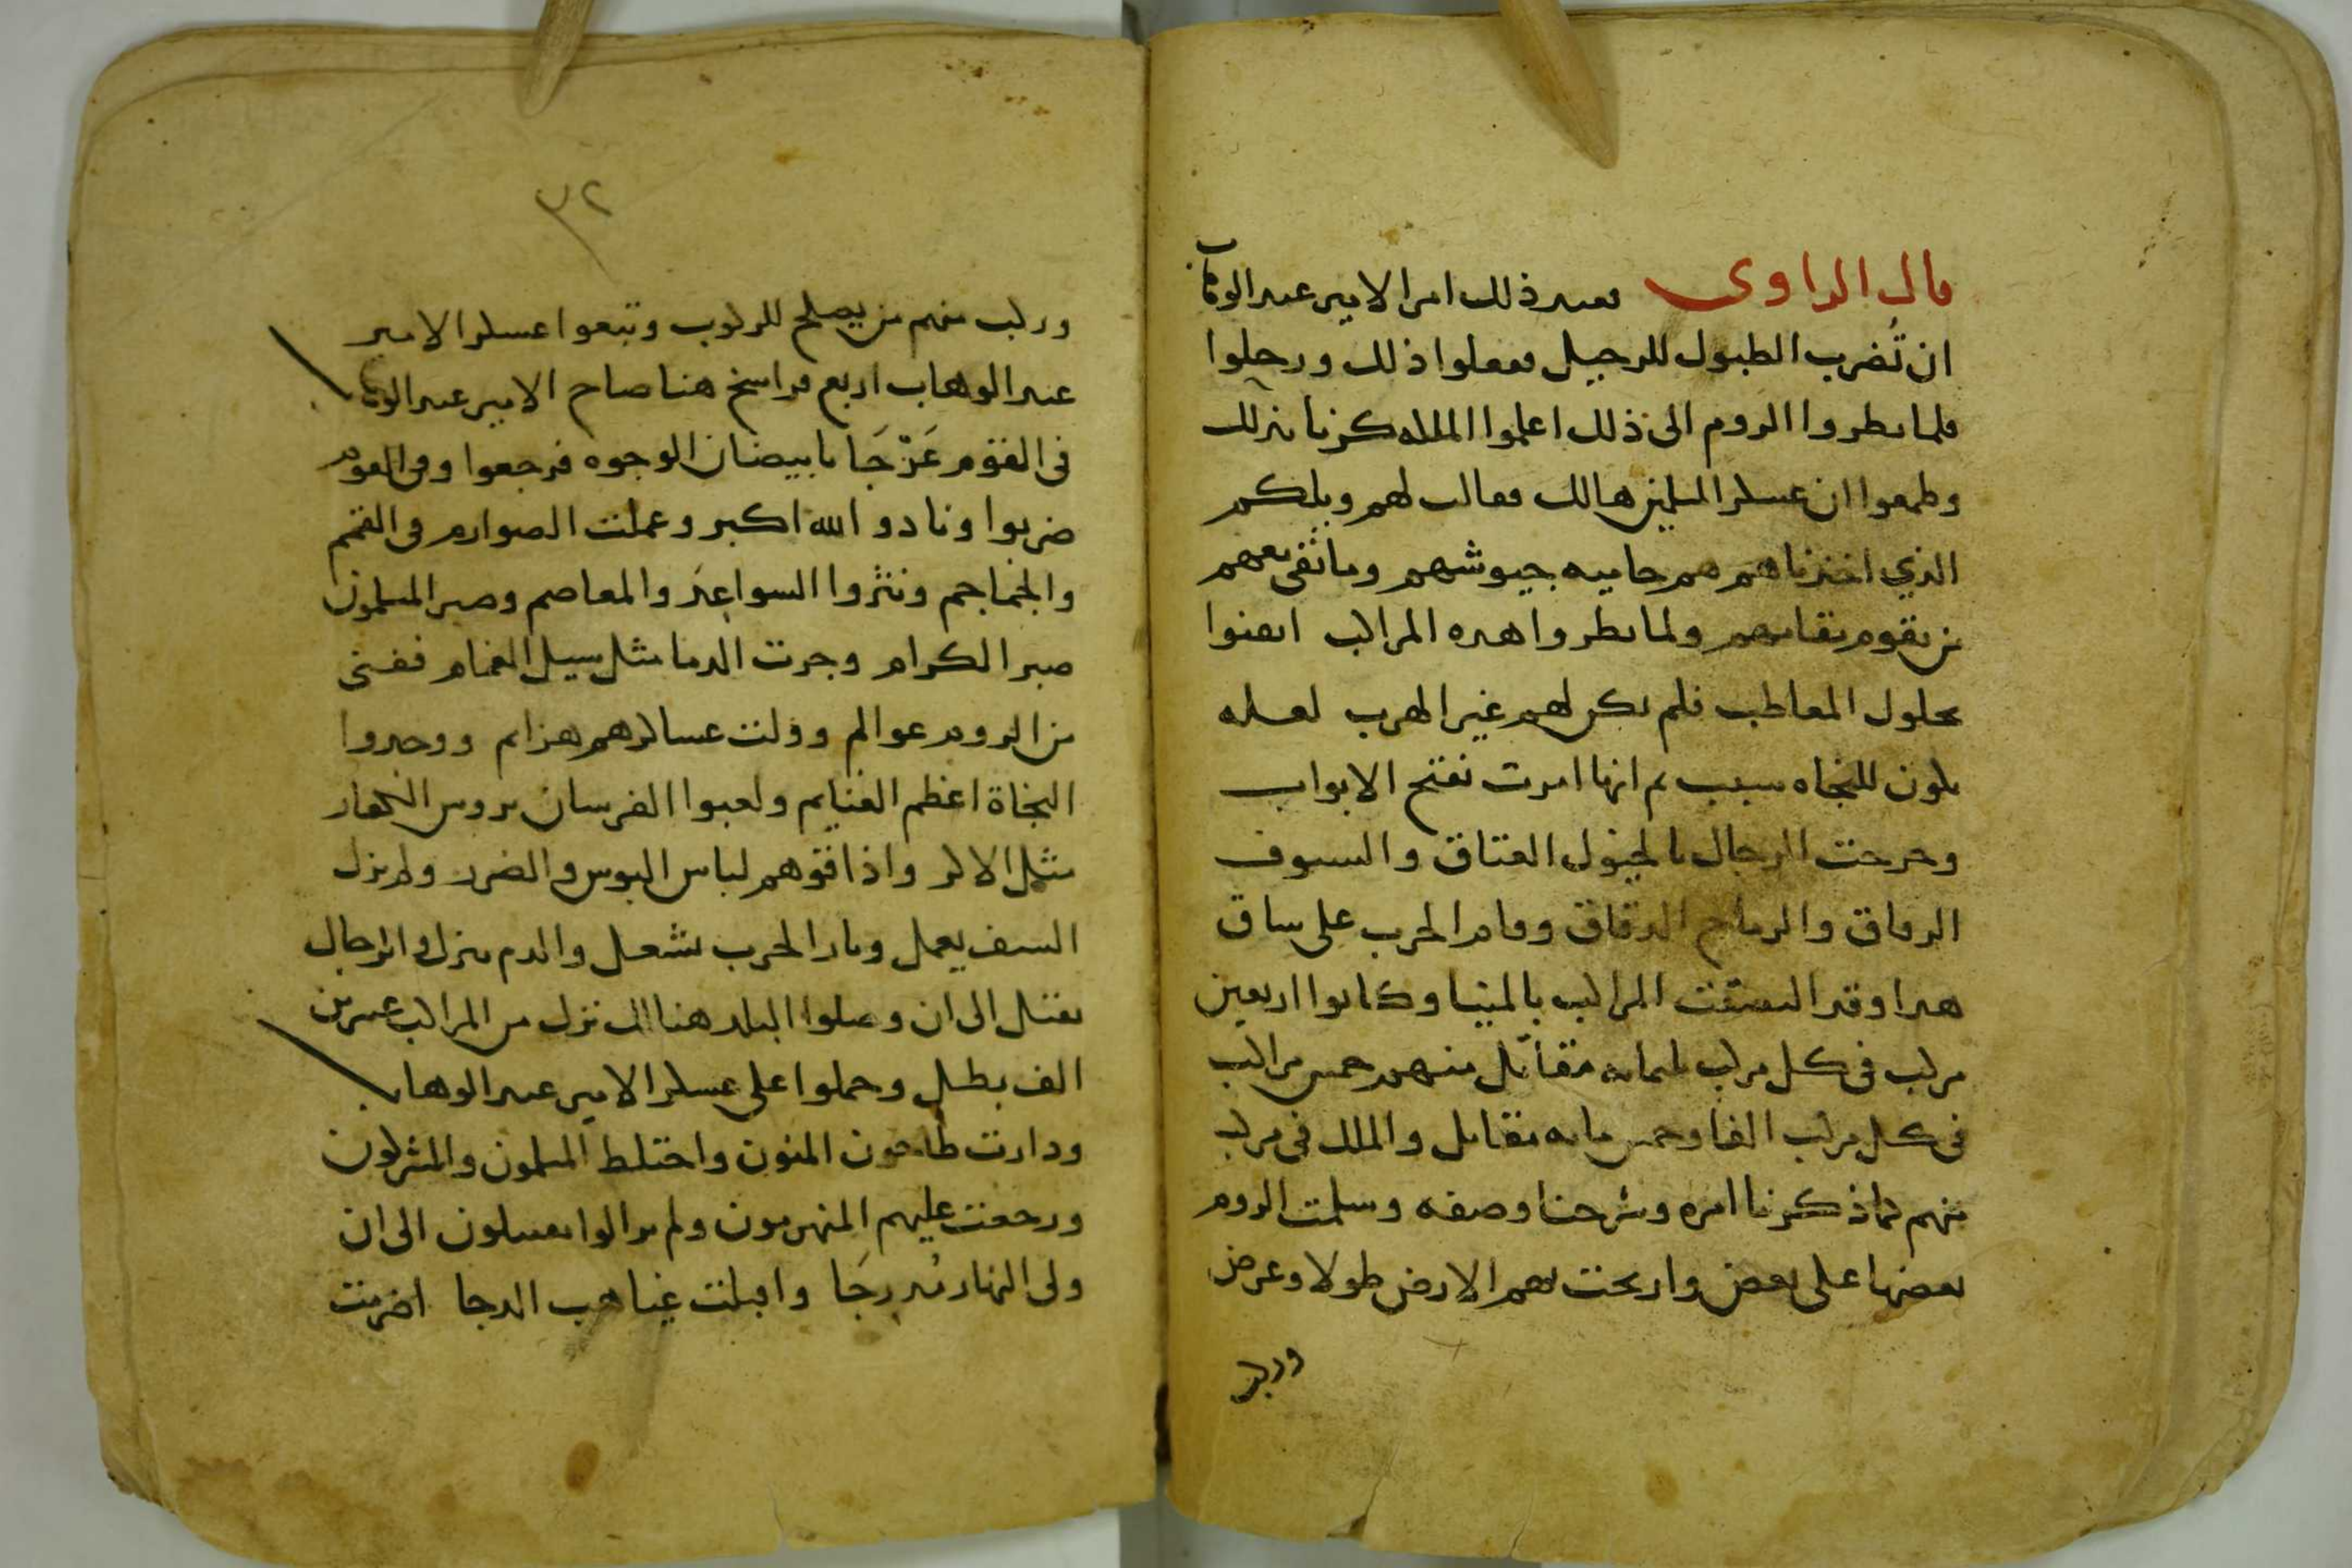 قال الراوى فعند ذلك امر الامير عبد الوهاب
ان تُضرب الطبول للرحيل ففعلوا ذلك ورحلوا
فلما نظروا الروم الى ذلك اعلموا الملكه كزنا بذلك
وطمعوا ان عسكر المسلمين هالك فقالت لهم ويلكم
الذي اخذناهم هم حاميه جيوشهم وما بقى معهم
من يقوم مقامهم ولما نظروا هده المراكب ايقنوا
بحلول المعاطب فلم يكن لهم غير الهرب لعله
يكون للنجاه سبب ثم انها امرت بفتح الابواب
وخرجت الرجال بالخيول العتاق والسيوف
الرقاق والرماح الدقاق وقام الحرب على ساق
هدا وقد التصقت المراكب بالمينا وكانوا اربعين
مركب فى كل مركب ثلثمايه مقاتل منهم خمس مراكب
فى كل مركب الفا وخمس مايه مقاتل والملك فى مركب
منهم كما ذكرنا امره وشرحنا وصفه وسلمت الروم
بعضها على بعض وارتجت بهم الارض طولا وعرض
وركب
٣٢
وركب منهم من يصلح للركوب وتبعوا عسكر الامير
عبد الوهاب اربع فراسخ هنا صاح الامير عبد الوهاب
فى القوم عَرْجَا يا بيضان الوجوه فرجعوا وفى القوم
ضربوا ونادو الله اكبر وعملت الصوارم فى القمم
والجماجم ونثروا السواعد والمعاصم وصبر المسلمون
صبر الكرام وجرت الدما مثل سيل الغمام ففنى
من الروم عوالم وولت عساكرهم هزايم ووجدوا
النجاة اعظم الغنايم ولعبوا الفرسان بروس الكفار
مثل الاكر واذاقوهم لباس البوس والضرر ولم يزل
السيف يعمل ونار الحرب تشعل والدم ينزل والرجال
تقتل الى ان وصلوا البلد هنالك نزل من المراكب عشرين
الف بطل وحملوا على عسكر الامير عبد الوهاب
ودارت طاحون المنون واختلط المسلمون والمشركون
ورجعت عليهم المنهزمون ولم يزالوا يقتتلون الى ان
ولى النهار مُدرجَا واقبلت غياهب الدجا اضرمت